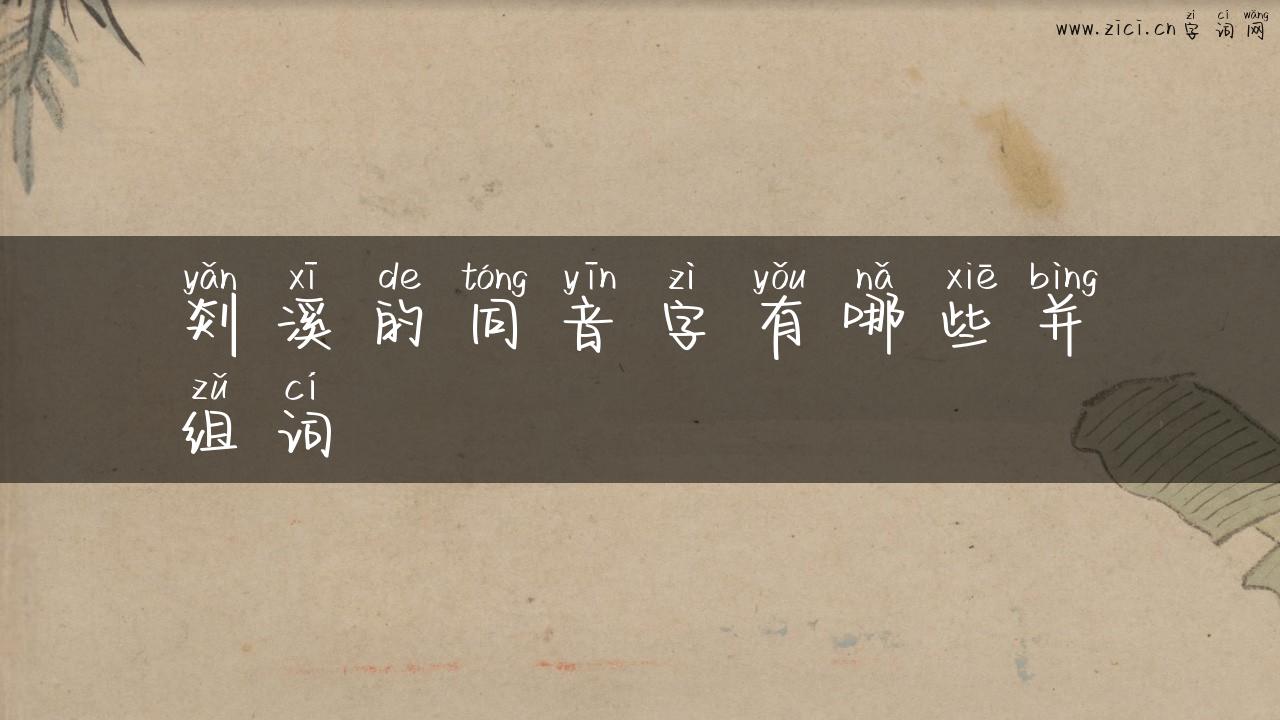 zì cí wǎng
www.zici.cn 字词网
yǎn xī de tóng yīn zì yǒu nǎ xiē bìng
剡溪的同音字有哪些并
zǔ cí
组词